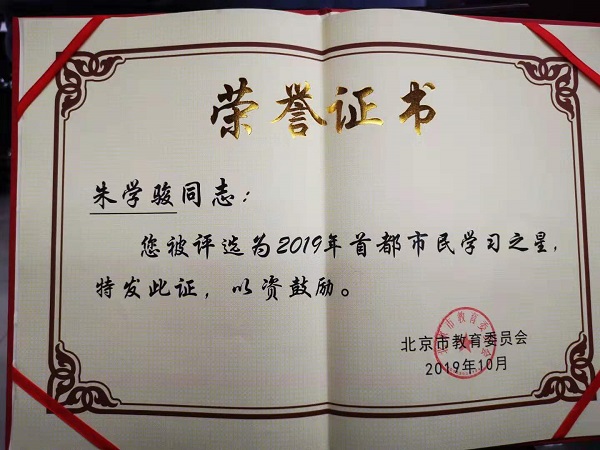 荣誉证书
朱学骏同志：
您被评选为2019年首都市民学习之星，
特发此证，以资鼓励。
北京市教育委员会
2019年10月
北京市教育委员会